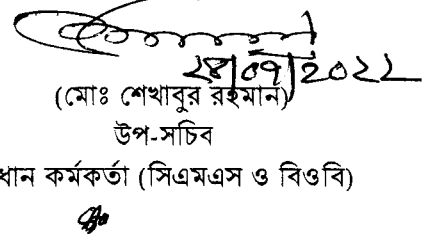 ২৪|০৭|২০২২
(মোঃ শেখাবুর রহমান)
উপ-সচিব
ধান কর্মকর্তা (সিএমএস ও বিওবি)